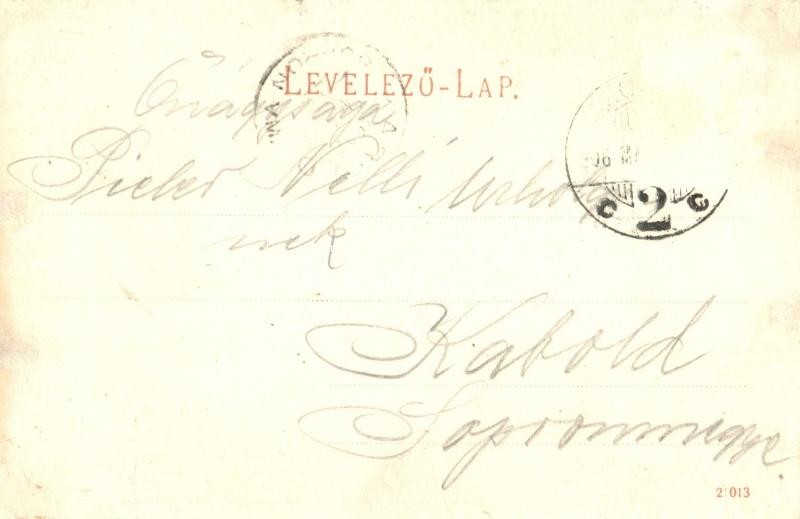 LEVELEZŐ-LAP.
Őnagysága
Pieler Nelli úrhölgy
nek
Kabold
Sopronmegye.
906 MA
C 2 C
21013